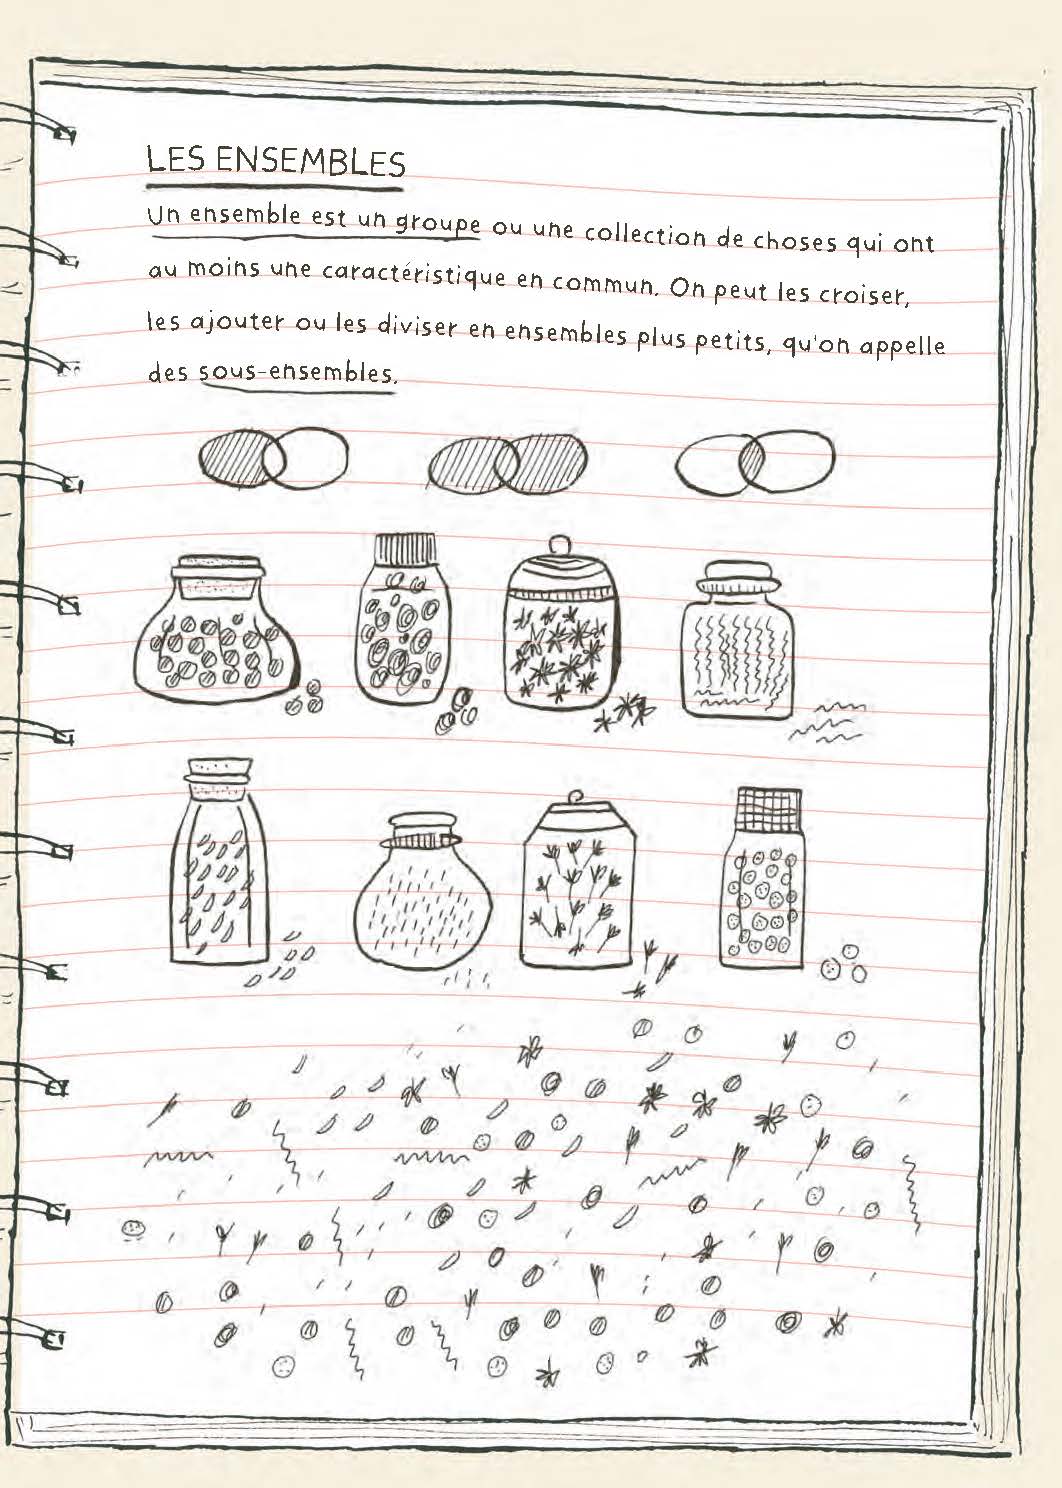 LES ENSEMBLES
Un ensemble est un groupe ou une collection de choses qui ont
au moins une caractéristique en commun. On peut les croiser,
les ajouter ou les diviser en ensembles plus petits, qu'on appelle
des sous-ensembles.